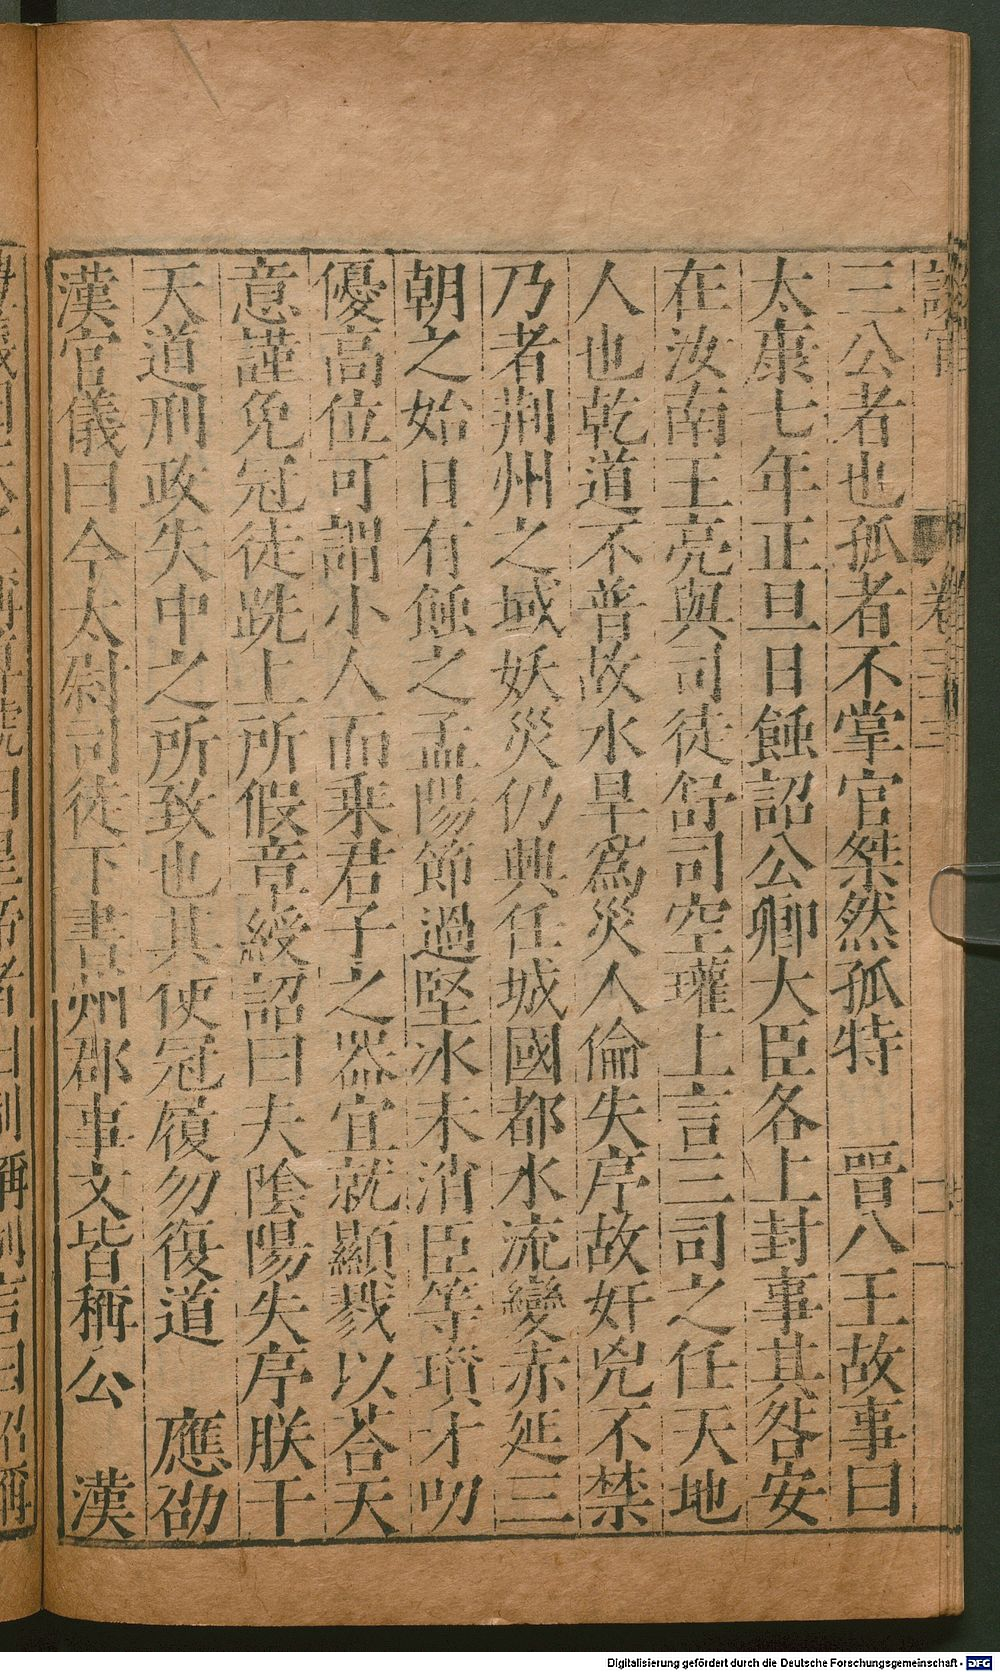 三公者也孤者不掌官桀然孤特 晉八王故事曰
太康七年正旦日蝕詔公卿大臣各上封事其咎安
在汝南王亮與司徒舒司空瓘上言三司之任天地
人也乾道不普故水旱爲災人倫失序故奸兇不禁
乃者荆州之域妖災仍興任城國都水流變赤延三
朝之始日有蝕之孟陽節過堅冰未消臣等瑣才叨
優高位可謂小人而乘君子之器宜就顯戮以荅天
意謹免冠徒跣上所假章綬詔曰夫陰陽失序朕干
天道刑政失中之所致也其使冠履勿復道 應劭
漢官儀曰今太尉司徒下書州郡事文皆稱公 漢
Digitalisierung gefördert durch die Deutsche Forschungsgemeinschaft - DFG